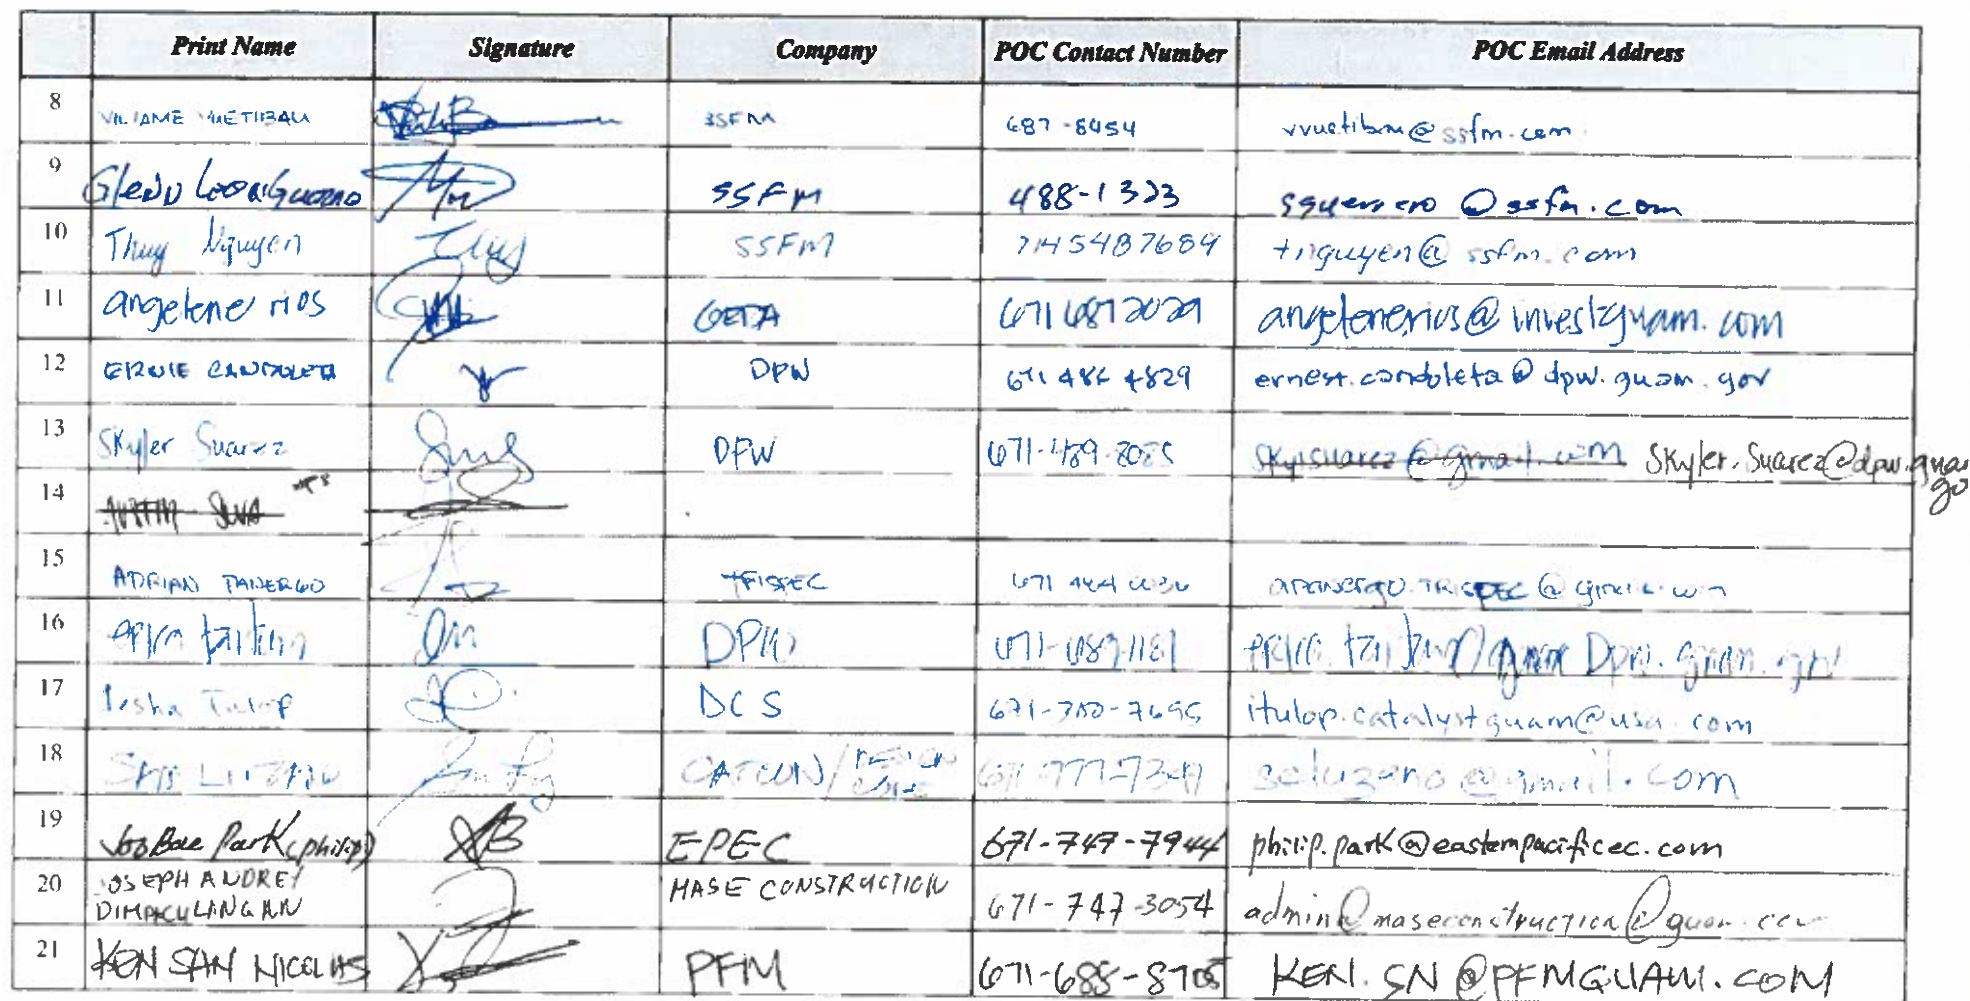 Print Name Signature Company POC Contact Number POC Email Address
8 VILIAME VUETIBAU SSFM 687-8454 vvuetibau@ssfm.com
9 Glenn Leon Guerrero SSFM 488-1323 sguerrero@ssfm.com
10 Thuy Nguyen SSFM 7145487684 tnguyen@ssfm.com
11 angelene rios GETA 671 687 2029 angelenerios@investguam.com
12 ERNIE CANDOLETA DPW 671 486 4829 ernest.candoleta@dpw.guam.gov
13 Skyler Suarez DPW 671-489-8085 skylsuarez@gmail.com Skyler.Suarez@dpw.guam
go
14
15 ADRIAN PANERGO TRISPEC 671
16 DPW Dpw.guam.gov
17 Iesha Tulop DCS 671-700-7695 itulop.catalystguam@usa.com
18 671-777-7347 scluzano@gmail.com
19 Joo Bae Park (philip) EPEC 671-747-7944 philip.park@easternpacificec.com
20 JOSEPH ANDREI MASE CONSTRUCTION 671-747-3054 admin@maseconstruction@guam.com
DIMACULANGAN
21 KEN SAN NICOLAS PFM 671-688-8705 KEN.SN@PFMGUAM.COM